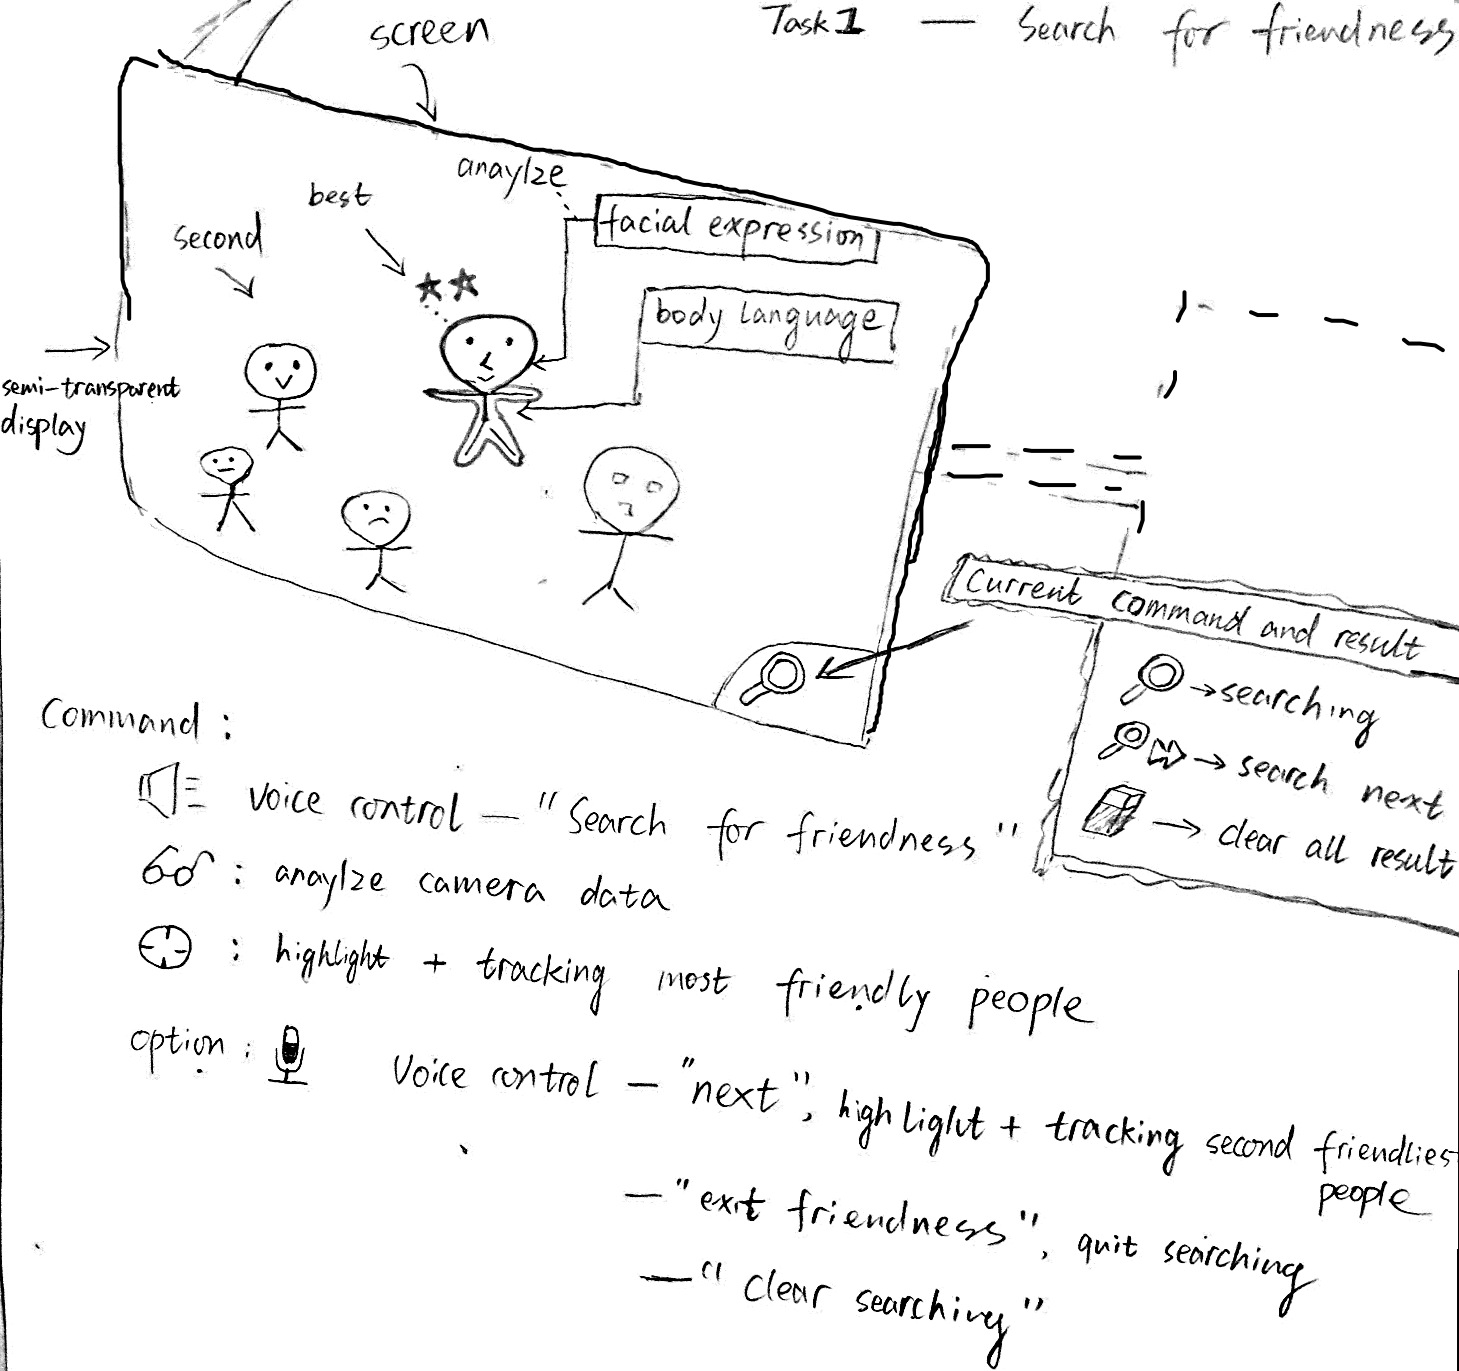 Task1 — Search for friendness
screen
anaylze
best
second
facial expression
body language
semi-transparent
display
Current command and result
→ searching
→ search next
→ clear all result
Command :
voice control — "Search for friendness"
: anaylze camera data
: highlight + tracking most friendly people
option :
Voice control — "next", highlight + tracking second friendlies
people
— "exit friendness", quit searching
— "Clear searching"